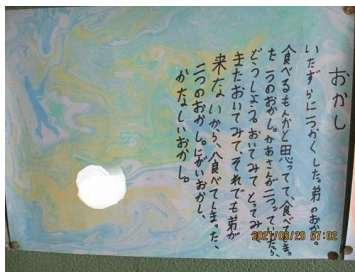 おかし
いたずらに一つかくした。弟のおかし。
食べるもんかと思ってて、食べてしまっ
た一つのおかし。かあさんが二つっていったら、
どうしよう。おいてみてとってみて
またおいてみて、それでも弟が
来ないから、食べてしまった、
二つのおかし。にがいおかし、
かなしいおかし。
2021/09/23 07:02